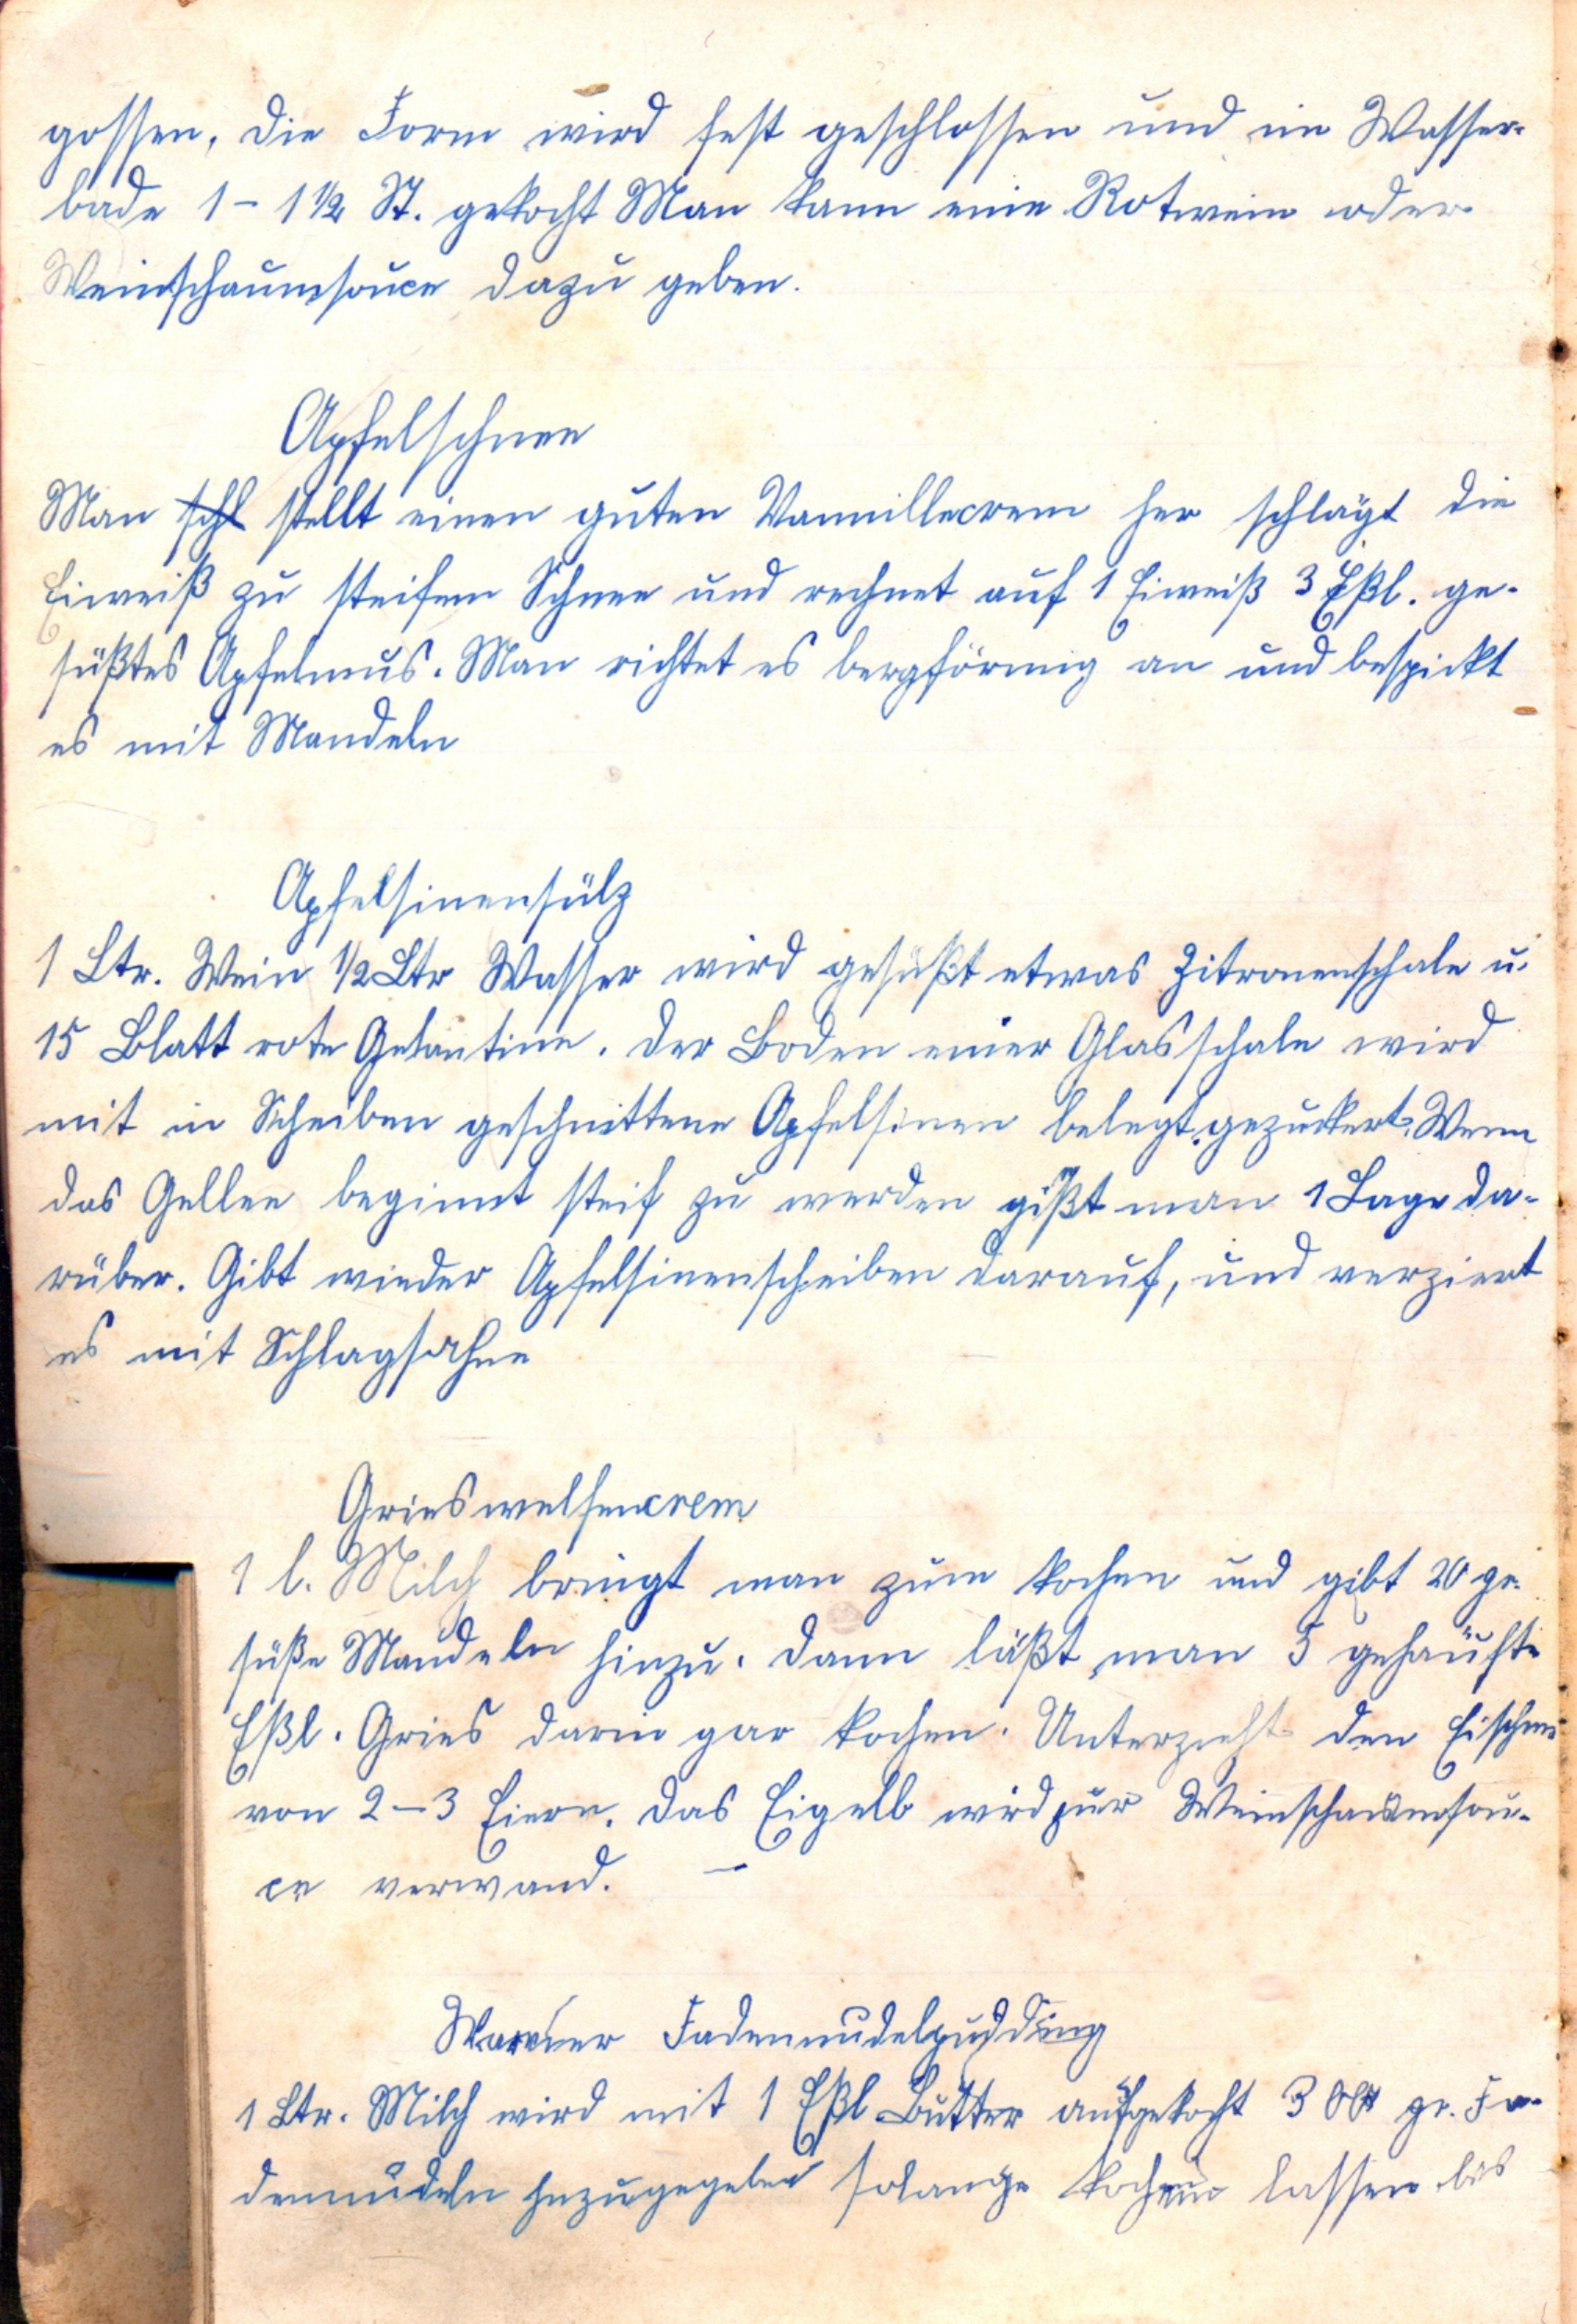 gossen, die Form wird fest geschlossen und im Wasser-
bade 1 – 1 1/2 St. gekocht Man kann eine Rotwein oder
Weinschaumsouce dazu geben.
Apfelschnee
Man schl stellt einen guten Vannillecrem her schlägt die
Eiweiß zu steifem Schnee und rechnet auf 1 Eiweiß 3 Eßl. ge-
süßtes Apfelmus. Man richtet es bergförmig an und bespickt
es mit Mandeln
Apfelsinensülz
1 Ltr. Wein 1/2 Ltr Wasser wird gesüßt etwas Zitronenschale u.
15 Blatt rote Gelantine. Der Boden einer Glasschale wird
mit in Scheiben geschnittene Apfelsinen belegt gezuckert. Wenn
das Gellee beginnt steif zu werden gißt man 1 Lage da-
rüber. Gibt wieder Apfelsinenscheiben darauf, und verziert
es mit Schlagsahne
Grieswelfencrem
1 l. Milch bringt man zum kochen und gibt 20 gr.
süße Mandeln hinzu. Dann läßt man 5 gehäufte
Eßl. Gries darin gar kochen. Unterzieht den Eischnee
von 2 – 3 Eiern. Das Eigelb wird zur Weinschaumsou-
ce verwand. –
Warmer Fadennudelpudding
1 Ltr. Milch wird mit 1 Eßl Butter aufgekocht 300 gr. Fa-
dennudeln hnzugegeben solange kochen lassen bis